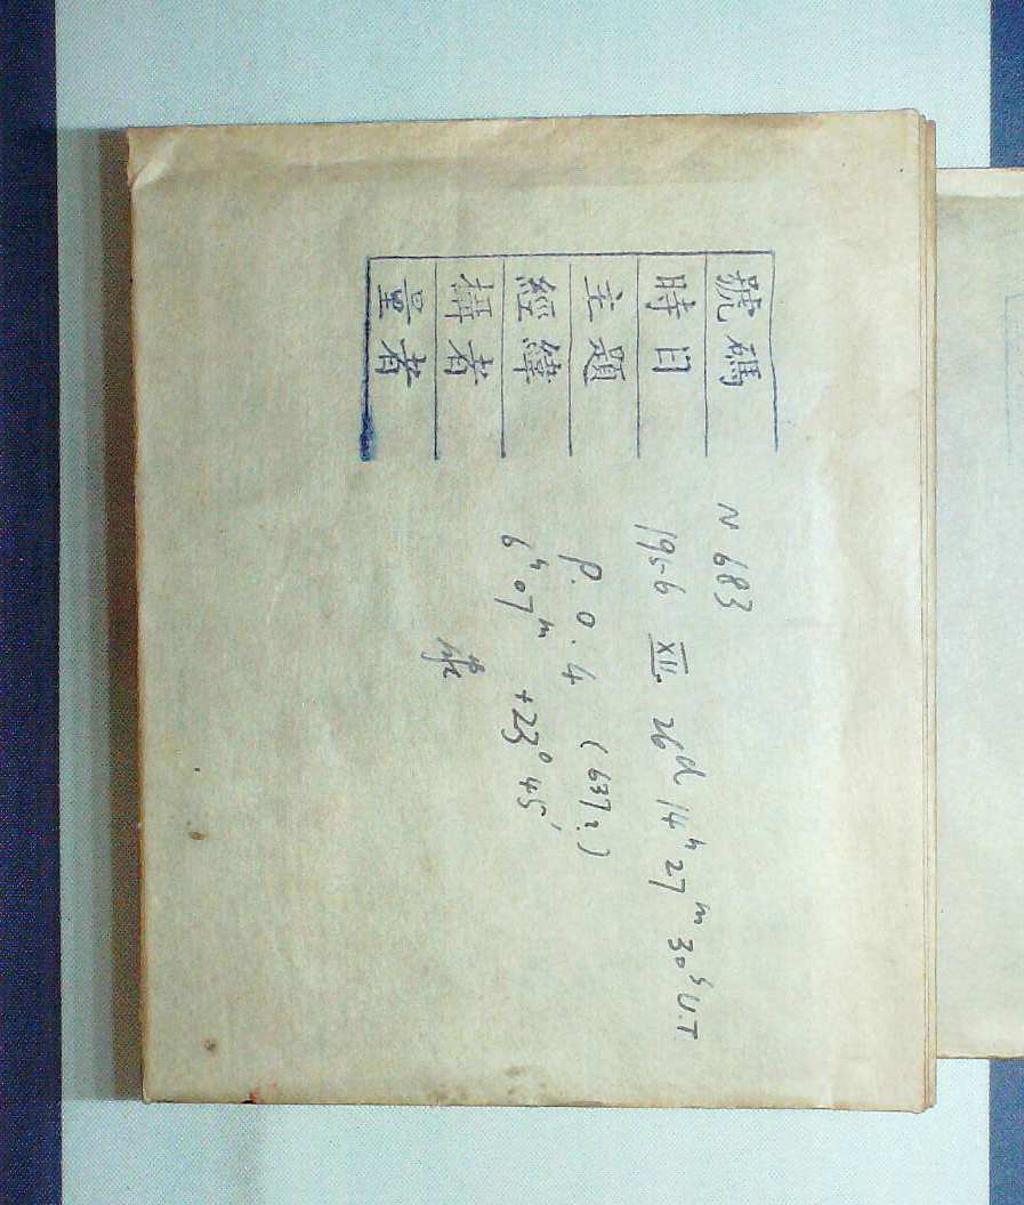 號碼 N 683
時日 1956 XII. 26d 14h 27m 30s U.T
主題 P.O.4 (637?)
經緯 6h 07m +23° 45'
攝者
量者